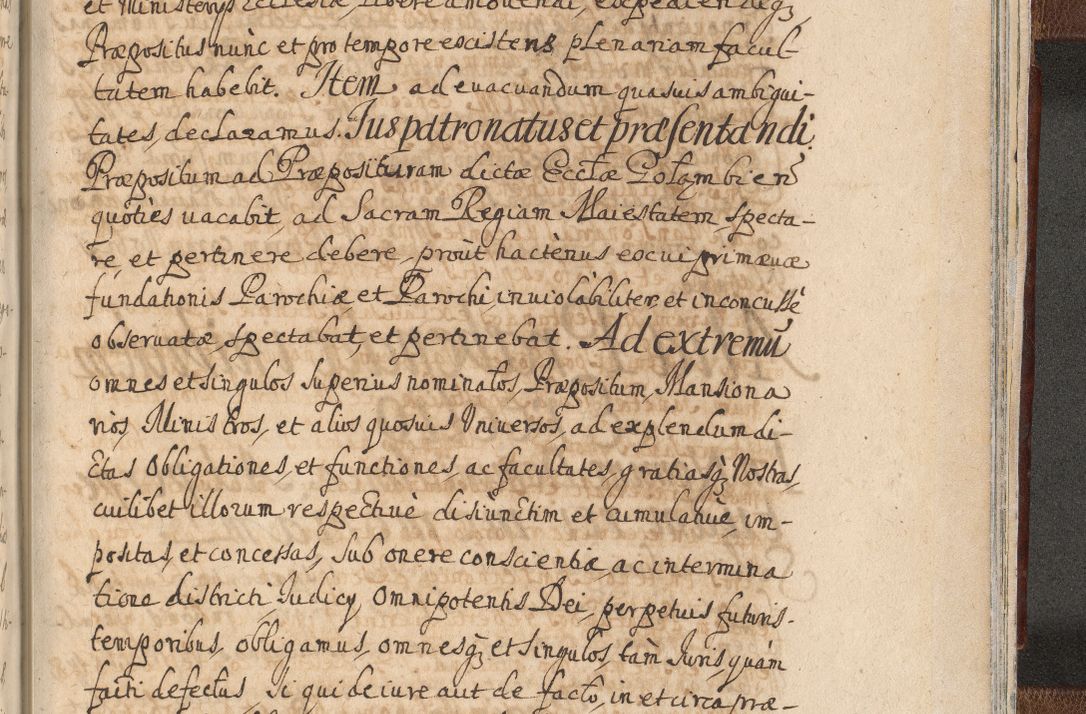 et Ministerys Ecclesiæ, libere amovendi,
Præpositus nunc et pro tempore existens plenariam facul-
tatem habebit. Item ad evacuandum quasuis ambigui-
tates, declaramus. Ius patronatus et præsentandi
Præpositum ad Præposituram dictæ Eccłæ Gołąmbien̄
quoties vacabit, ad Sacram Regiam Maiestatem, specta-
re, et pertinere debere, proùt hactenus ex vi primævæ
fundationis Parochiæ et Parochi, inviolabiliter et inconcussè
observatæ, spectabat, et pertinebat. Ad extremū
omnes et singulos superius nominatos, Præpositum, Mansiona
rios, Ministros, et alios quosuis Vniversos, ad explendum di-
ctas Obligationes, et functiones, ac facultates, gratiasq́ꝫ Nostras,
cuilibet illorum respectiuè disiunctim et cumulatiuè im-
positas, et concessas, sub onere conscientiæ, ac intermina
tione districti Iudicy, Omnipotentis Dei, perpetuis futuris-
temporibus, obligamus, omnesq́ꝫ et singulos, tam̀ Iuris quám
faiti defectus si qui de iure aut de facto, in et circa præ-